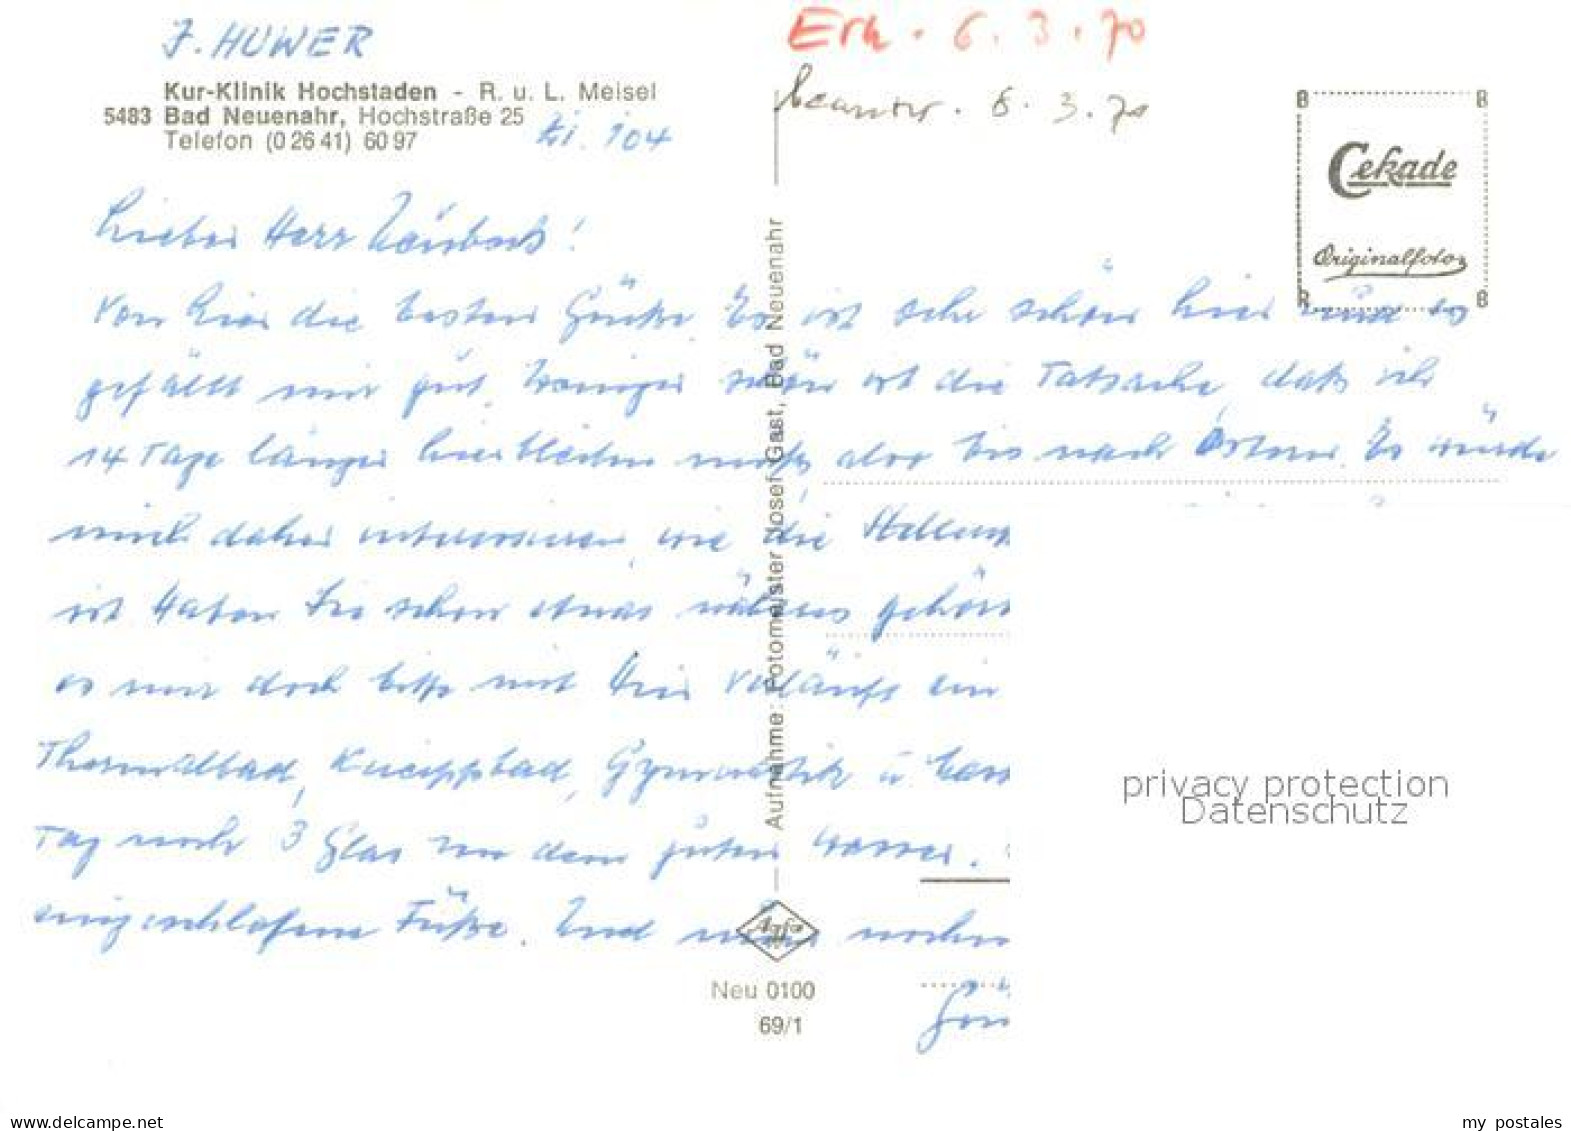 J. HUWER
Kur-Klinik Hochstaden - R. u. L. Meisel
5483 Bad Neuenahr, Hochstraße 25
Telefon (0 26 41) 60 97
Zi. 104
Erh. 6. 3. 70
beantw. 6. 3. 70
Cekade
Originalfoto
Lieber Herr
Von hier die besten Grüße. Es ist sehr schön hier und es
gefällt mir gut. Weniger schön ist die Tatsache, daß ich
14 Tage länger hierbleiben muß, also bis nach Ostern. Es würde
mich daher interessieren, wie die
ist. Haben Sie schon etwas näheres
es mir doch bitte mit. Hier verläuft ein
Thermalbad, Kneippbad, Gymnastik u.
Tag noch 3 Glas von dem guten Wasser.
eingeschlafene Füße. Und
Aufnahme: Fotomeister Josef Gast, Bad Neuenahr
Agfa
Neu 0100
69/1
privacy protection
Datenschutz
www.delcampe.net
my_postales